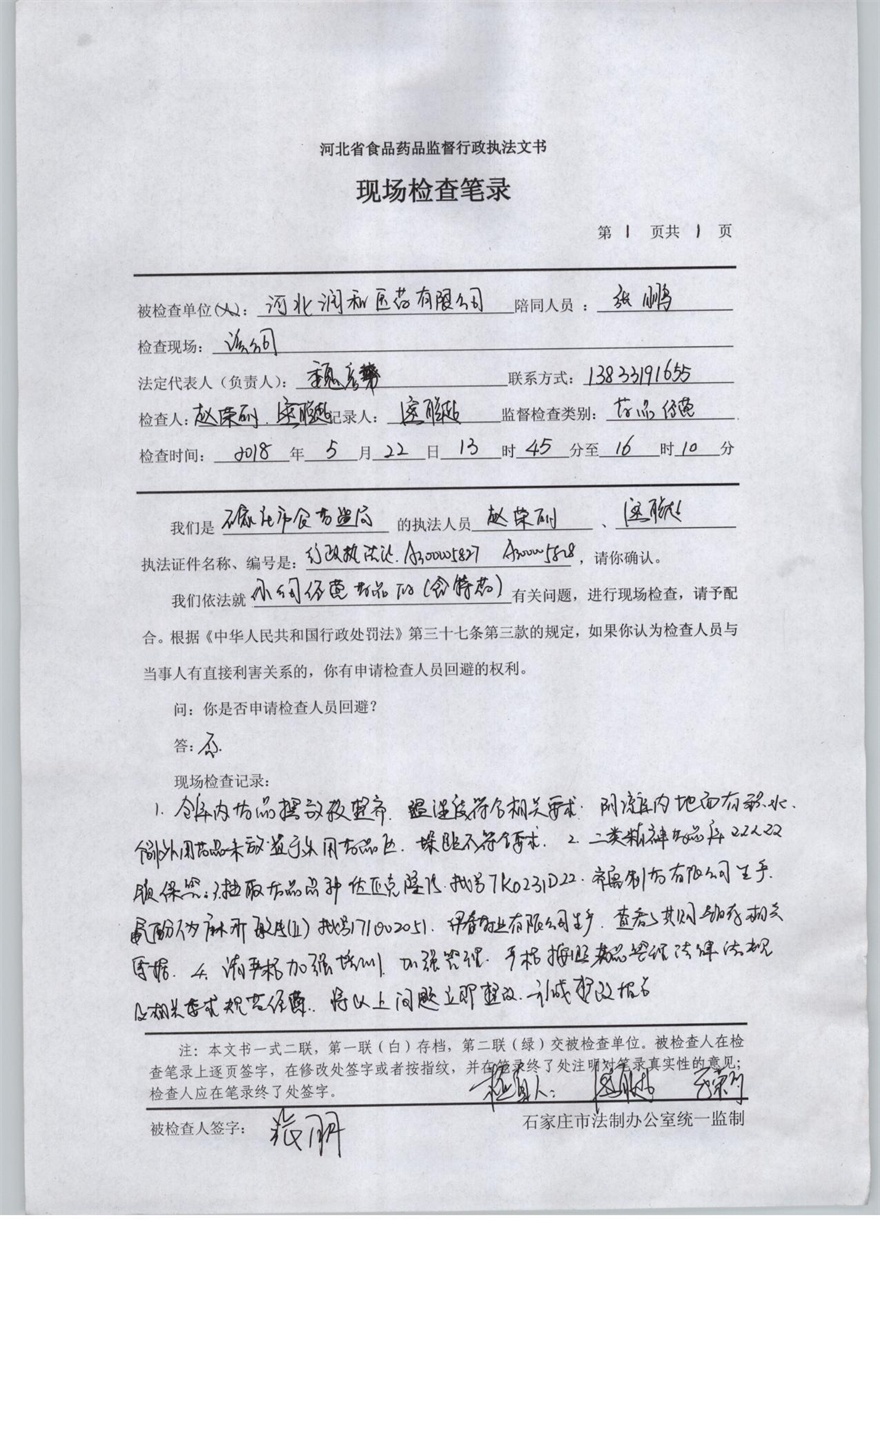 河北省食品药品监督行政执法文书
现场检查笔录
第 1 页共 1 页
被检查单位(人)：河北润和医药有限公司 陪同人员：张鹏
检查现场：该公司
法定代表人（负责人）：魏彦 联系方式：13833191655
检查人：赵荣利、 记录人： 监督检查类别：药品经营
检查时间：2018年5月22日13时45分至16时10分
我们是石家庄市食药监局的执法人员赵荣利、
执法证件名称、编号是：行政执法证 A30005827 A30005828，请你确认。
我们依法就你公司经营药品的(含特药)有关问题，进行现场检查，请予配
合。根据《中华人民共和国行政处罚法》第三十七条第三款的规定，如果你认为检查人员与
当事人有直接利害关系的，你有申请检查人员回避的权利。
问：你是否申请检查人员回避？
答：否.
现场检查记录：
1. 仓库内药品摆放较整齐，温湿度符合相关要求. 阴凉库内地面有积水.
个别外用药品未放置于外用药品区. 垛距不符合要求. 2. 二类精神药品库
3.抽取药品品种 批号TK0231D22. 制药有限公司生产.
批号171002051. 药业有限公司生产. 查看 相关
4. 请严格加强培训, 加强管理. 严格按照药品管理法律法规
及相关要求规范经营. 将以上问题立即整改. 形成整改报告
注：本文书一式二联，第一联（白）存档，第二联（绿）交被检查单位。被检查人在检
查笔录上逐页签字，在修改处签字或者按指纹，并在笔录终了处注明对笔录真实性的意见；
检查人应在笔录终了处签字。
检查人：
被检查人签字：张鹏 石家庄市法制办公室统一监制